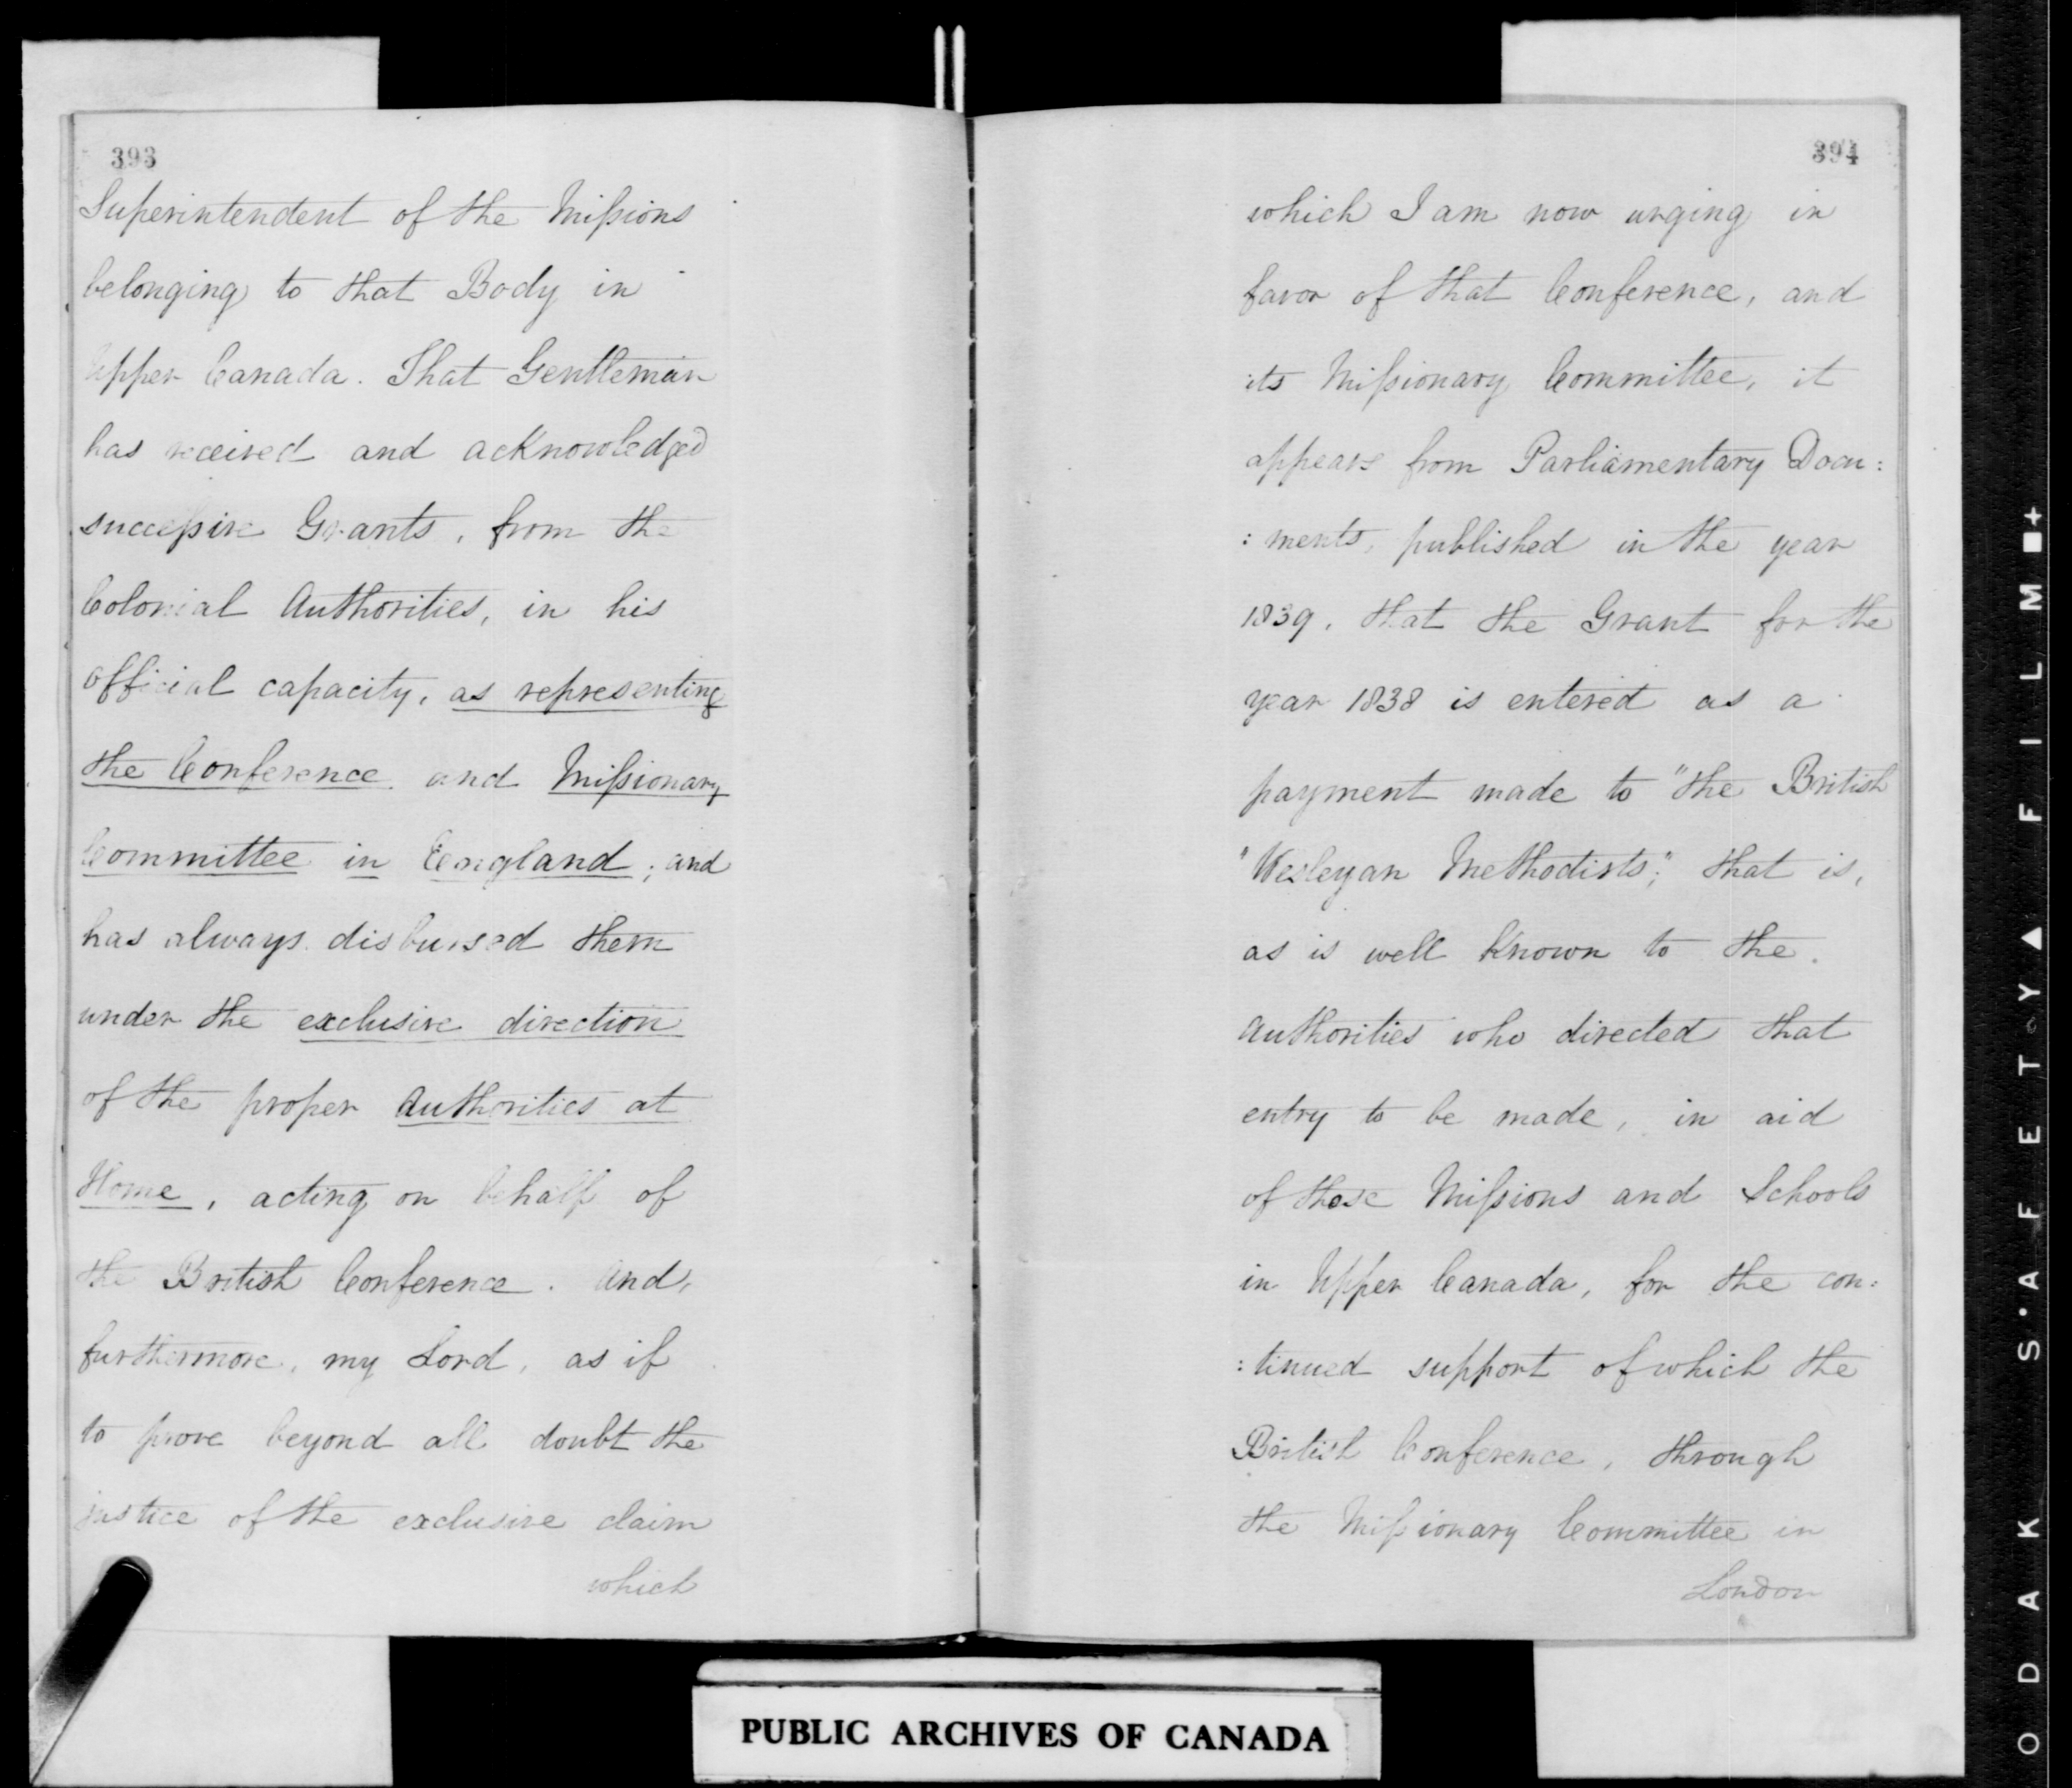 393
Superintendent of the Missions
belonging to that Body in
Upper Canada. That Gentleman
has received and acknowledged
successive Grants, from the
Colonial Authorities, in his
official capacity, as representing
the Conference and Missionary
Committee in England; and
has always disbursed them
under the exclusive direction
of the proper Authorities at
Home, acting on behalf of
the British Conference. And,
furthermore, my Lord, as if
to prove beyond all doubt the
justice of the exclusive claim
which
394
which I am now urging in
favor of that Conference, and
its Missionary Committee, it
appears from Parliamentary Docu:
:ments, published in the year
1839, that the Grant for the
year 1838 is entered as a
payment made to "the British
"Wesleyan Methodists;" that is,
as is well known to the
Authorities who directed that
entry to be made, in aid
of those Missions and Schools
in Upper Canada, for the con:
:tinued support of which the
British Conference, through
the Missionary Committee in
London
PUBLIC ARCHIVES OF CANADA
O D A K S'A F E T Y ▲ F I L M ■ +